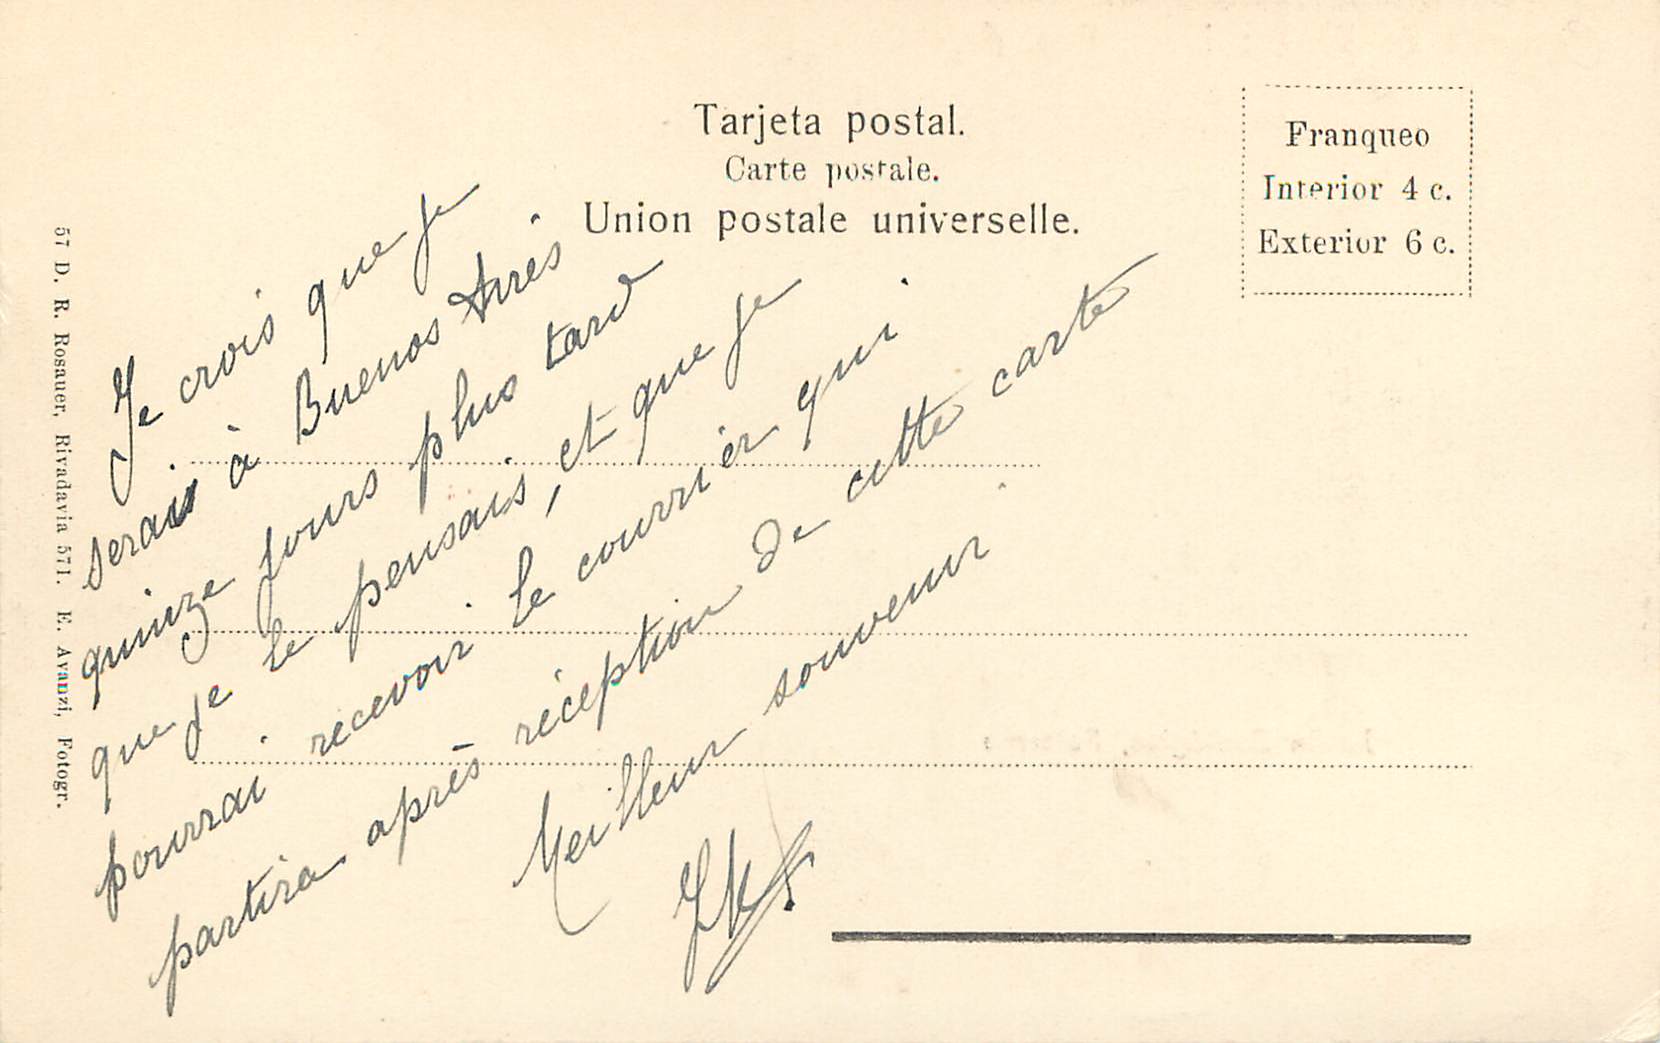 Tarjeta postal.
Carte postale.
Union postale universelle.
Franqueo
Interior 4 c.
Exterior 6 c.
57 D. R. Rosauer, Rivadavia 571. E. Avanzi, Fotogr.
Je crois que je
serais à Buenos Aires
quinze jours plus tard
que je le pensais, et que je
pourrai recevoir le courrier qui
partira après réception de cette carte
Meilleur souvenir